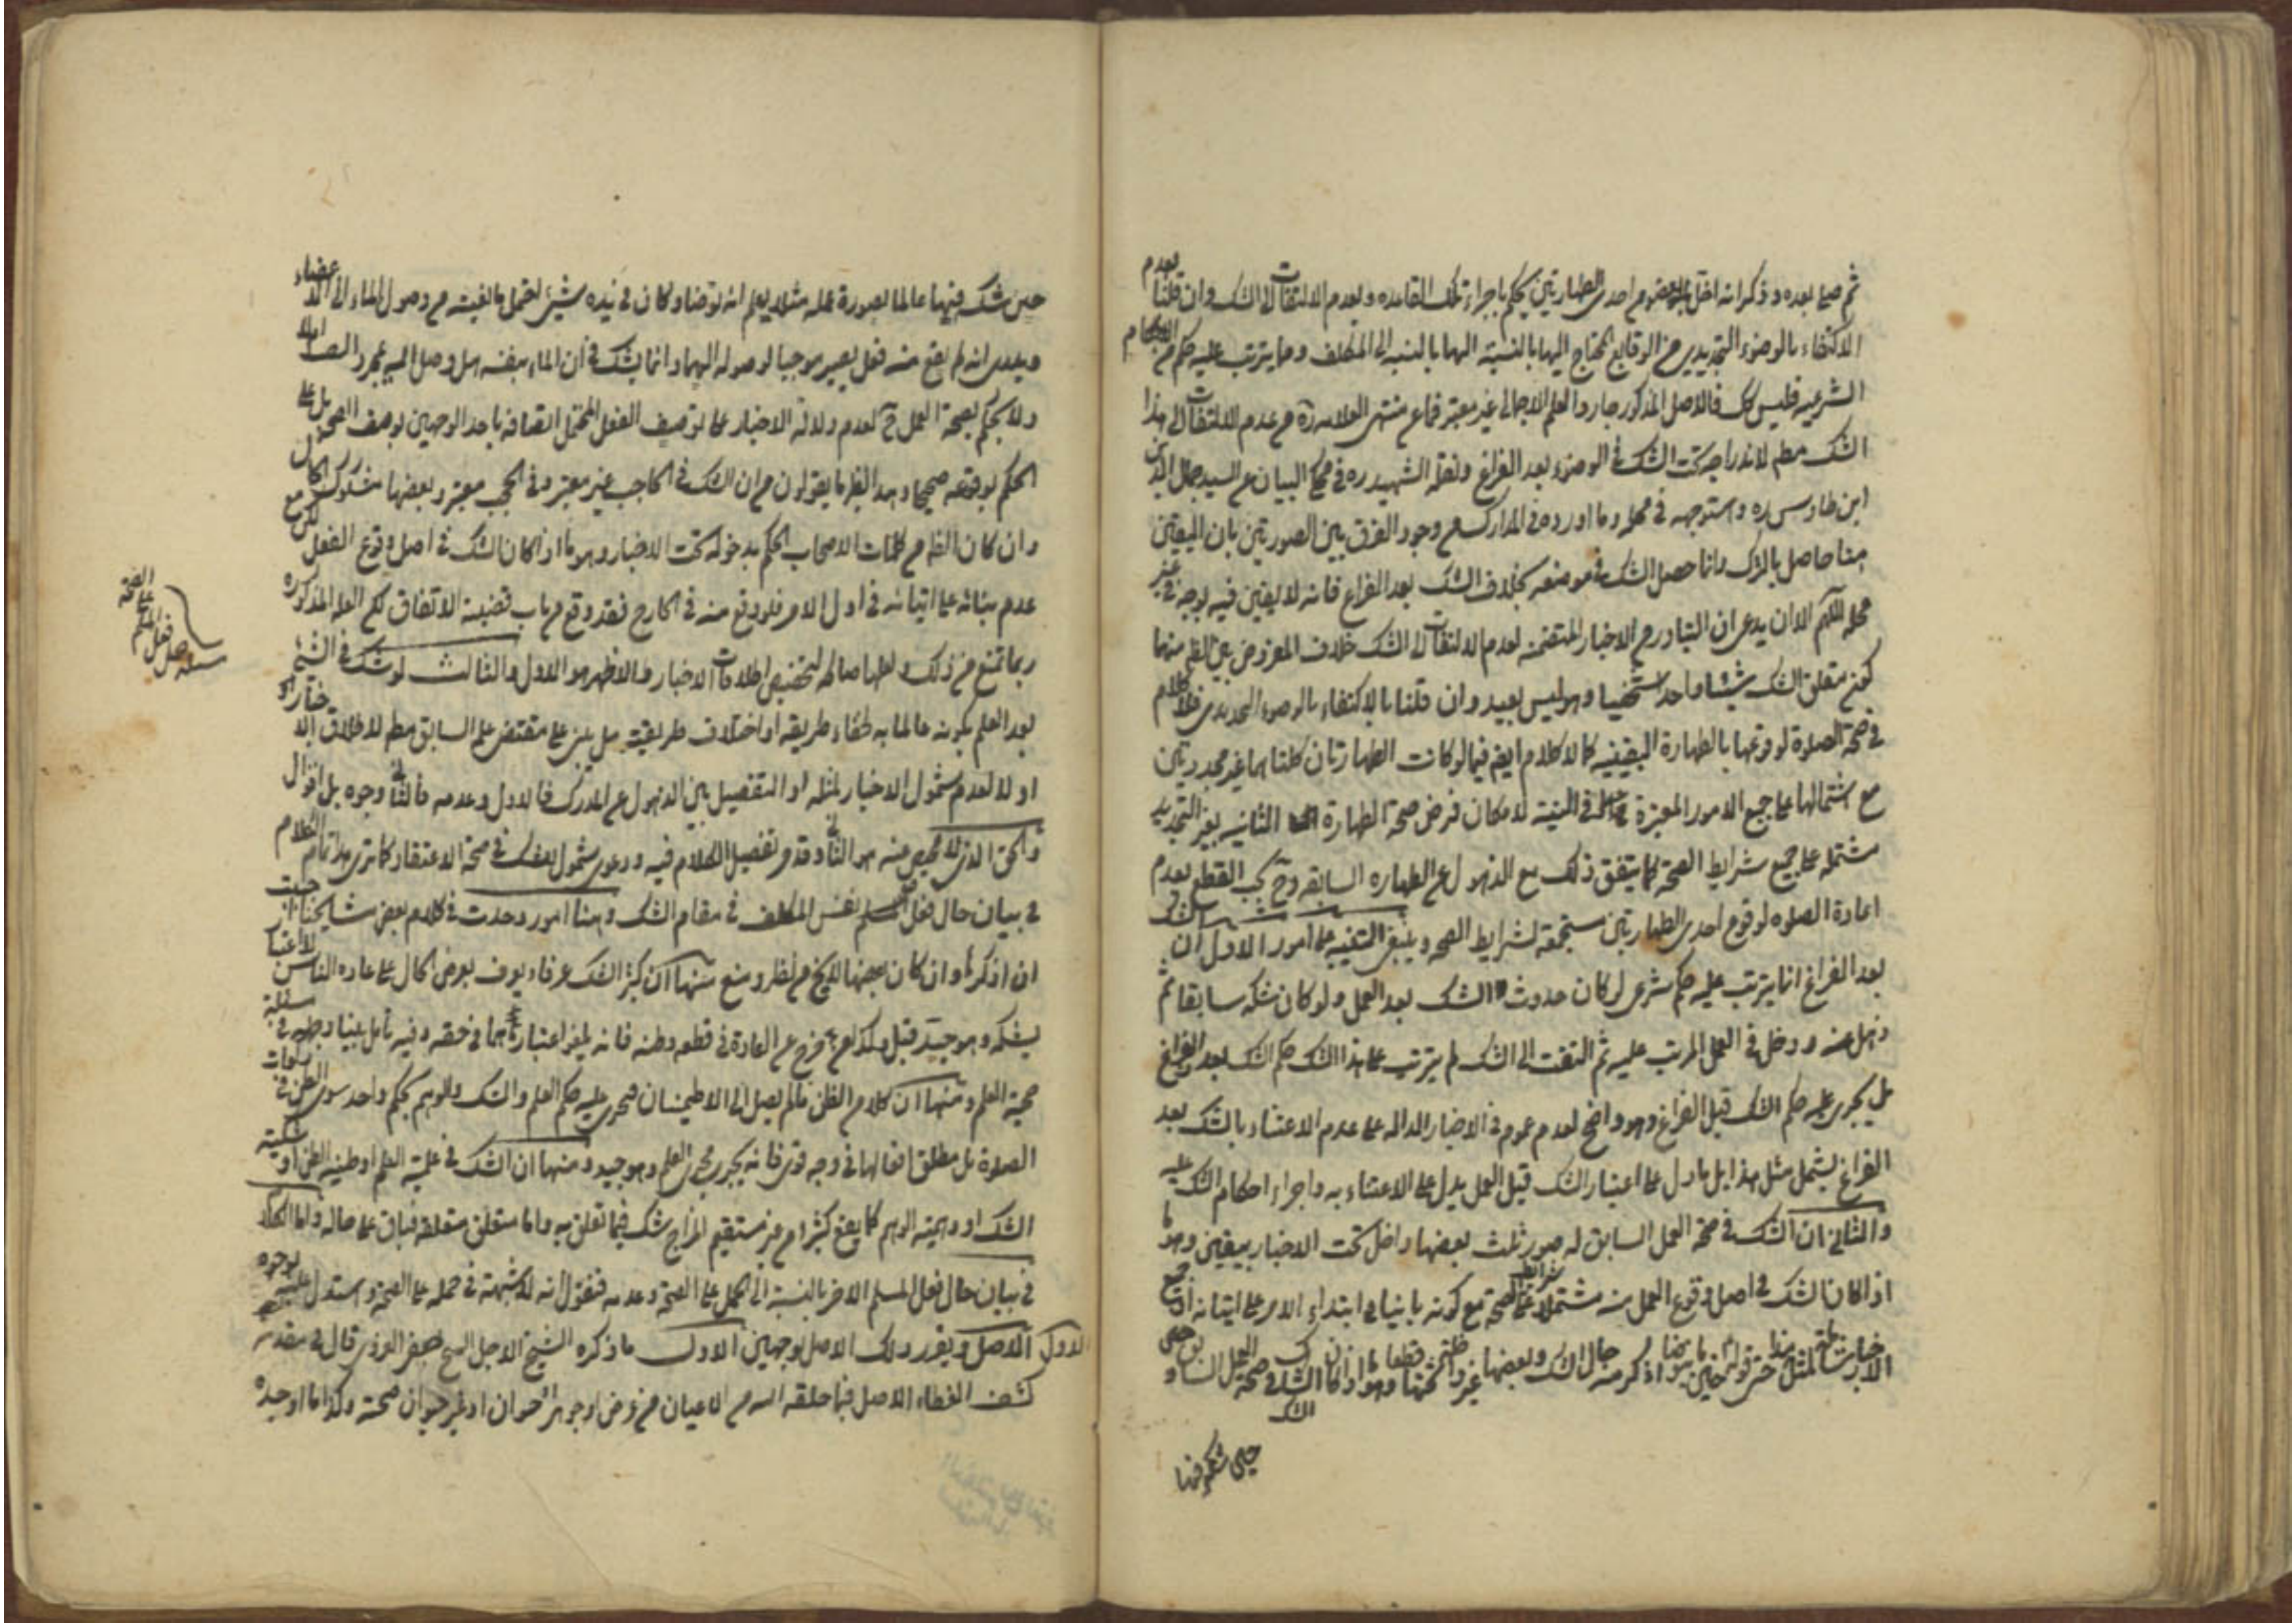 ثم صلى بعده وذكر انه اخل بعضو من احدى الطهارتين يحكم باجراء تلك القاعده وبعدم الالتفات الى الشك وان قلنا بعدم
الاكتفاء بالوضوء التجديدى من الوقايع المحتاج اليها بالنسبة اليها بالنسبه الى المكلف وما يترتب عليه حكم من الاحكام
الشرعيه فليس كك فالاصل المذكور جار والعلم الاجمالى غير معتبر فما عن منتهى العلامه ره من عدم الالتفات الى هذا
الشك مطم لاندراجه تحت الشك فى الوضوء بعد الفراغ ونقله الشهيد ره فى محكى البيان عن السيد جمال الدين
ابن طاوس ره واستوجهه فى محله وما اورده فى المدارك من وجود الفرق بين الصورتين بان اليقين
هنا حاصل بالترك وانما حصل الشك فى موضعه بخلاف الشك بعد الفراغ فانه لا يقين فيه بوجه فى غير
محله اللهم الا ان يدعى ان التبادر من الاخبار المتضمنه لعدم الالتفات الى الشك خلاف المفروض بل الظم منها
كون متعلق الشك شيئا واحدا شخصيا وهو ليس ببعيد وان قلنا بالاكتفاء بالوضوء التجديدى فلا كلام
فى صحة الصلوة لوقوعها بالطهارة اليقينيه كما لا كلام ايضم فيما لو كانت الطهارتان كلتاهما غير مجددتين
مع اشتمالها على جميع الامور المعتبرة فى النية لامكان فرض صحة الطهارة الثانيه بغير التجديد
مشتمله على جميع شرايط الصحه كما يتفق ذلك مع الذهول عن الطهاره السابقه وح يجب القطع بعدم
اعادة الصلوه لوقوع احدى الطهارتين مستجمعة لشرايط الصحه وينبغى التنبيه على امور الاول ان الشك
بعد الفراغ انما يترتب عليه حكم شرعى لو كان حدوث الشك بعد العمل ولو كان شكه سابقا ثم
ذهل عنه ودخل فى العمل المرتب عليه ثم التفت الى الشك لم يترتب على هذا الشك حكم الشك بعد الفراغ
بل يجرى عليه حكم الشك قبل الفراغ وهو واضح لعدم عموم فى الاخبار الداله على عدم الاعتناء بالشك بعد
الفراغ ليشمل مثل هذا بل ما دل على اعتبار الشك قبل العمل يدل على الاعتناء به واجراء احكام الشك عليه
والثانى ان الشك فى صحة العمل السابق له صور ثلث بعضها داخل تحت الاخبار بيقين وهو ما
اذا كان الشك فى اصل وقوع العمل منه مشتملا على شرايط الصحة مع كونه بانيا فى ابتداء الامر على اتيانه
حين شكه فيها
حين شك فيها عالما بصورة عمله مثلا يعلم انه توضا وكان فى يده شيئ يحتمل مانعيته من وصول الماء الى الاعضاء
ويدرى انه لم يقع منه فعل يصير موجبا لوصوله اليها وانما يشك فى ان الماء بنفسه هل وصل اليه بمجرد الصب ام لا
ولا يحكم بصحة العمل ح لعدم دلالة الاخبار على توصيف الفعل المحتمل اتصافه باحد الوجهين بوصف الصحه بل على
الحكم بوقوعه صحيحا وبهذا النظر ما يقولون من ان الشك فى الحاجب غير معتبر وفى الحجب معتبر وبعضها مشكوك الحال
وان كان الظم من كلمات الاصحاب الحكم بدخوله تحت الاخبار وهو ما اذا كان الشك فى اصل وقوع الفعل لكن مع
عدم بنائه على اتيانه فى اول الامر فلو وقع منه فى الخارج فقد وقع من باب قضية الاتفاق لكن العله المذكوره
ربما تمنع من ذلك ولعلها صالحه لتخصيص اطلاقات الاخبار والاظهر هو الاول والثالث لو شك فى الشيئ
بعد العلم بكونه عالما به خطاء طريقه او اختلاف طريقيته هل يبنى على مقتضى علم السابق مطم لاطلاق الاخبار او
او لا لعدم شمول الاخبار لمثله او التفصيل بين الذهول عن المدرك فالاول وعدمه فالثانى وجوه بل اقوال
والحق الذى لا محيص عنه هو الثانى وقد مر تفصيل الكلام فيه ودعوى شمول الشك فى صحة الاعتقاد كما ترى هذا تمام الكلام
فى بيان حال فعل المسلم نفس المكلف فى مقام الشك وهنا امور وجدت فى كلام بعض مشايخنا احببت
ان اذكرها وان كان بعضها لا يخ من نظر ومنع منها ان كثير الشك عرفا ويعرف بعرض الحال على عاده الناس لا اعتبار
بشكه وهو جيد قبل وكذلك من خرج عن العادة فى قطعه وظنه فانه يلغى اعتبارهما فى حقه وفيه تامل بينا وجهه فى مسئلة
حجية العلم ومنها ان كلا من الظن ما لم يصل الى الاطمينان فيجرى عليه حكم العلم والشك والوهم بحكم واحد سوى الظن فى ركعات
الصلوة بل مطلق افعالها فى وجه قوى فانه يجرى مجرى العلم وهو جيد ومنها ان الشك فى علمية العلم او ظنيه الظن او شكية
الشك او وهمية الوهم كما يقع كثيرا من غير مستقيم المزاج شك فيما تعلق به واما متعلق متعلقه فباق على حاله واما الكلام
فى بيان حال فعل المسلم الاخر بالنسبة الى الحمل على الصحة وعدمه فنقول انه لا شبهة فى حمله على الصحة واستدل عليه بوجوه
الاول الاصل ويقرر ذلك الاصل بوجهين الاول ما ذكره الشيخ الاجل الشيخ جعفر الغروى قال فى مقدمه
كشف الغطاء الاصل فيما خلقه الله من الاعيان من عرض او جوهر حيوان او غير حيوان صحته وكذا ما اوجده
اصل فعل المسلم على الصحة